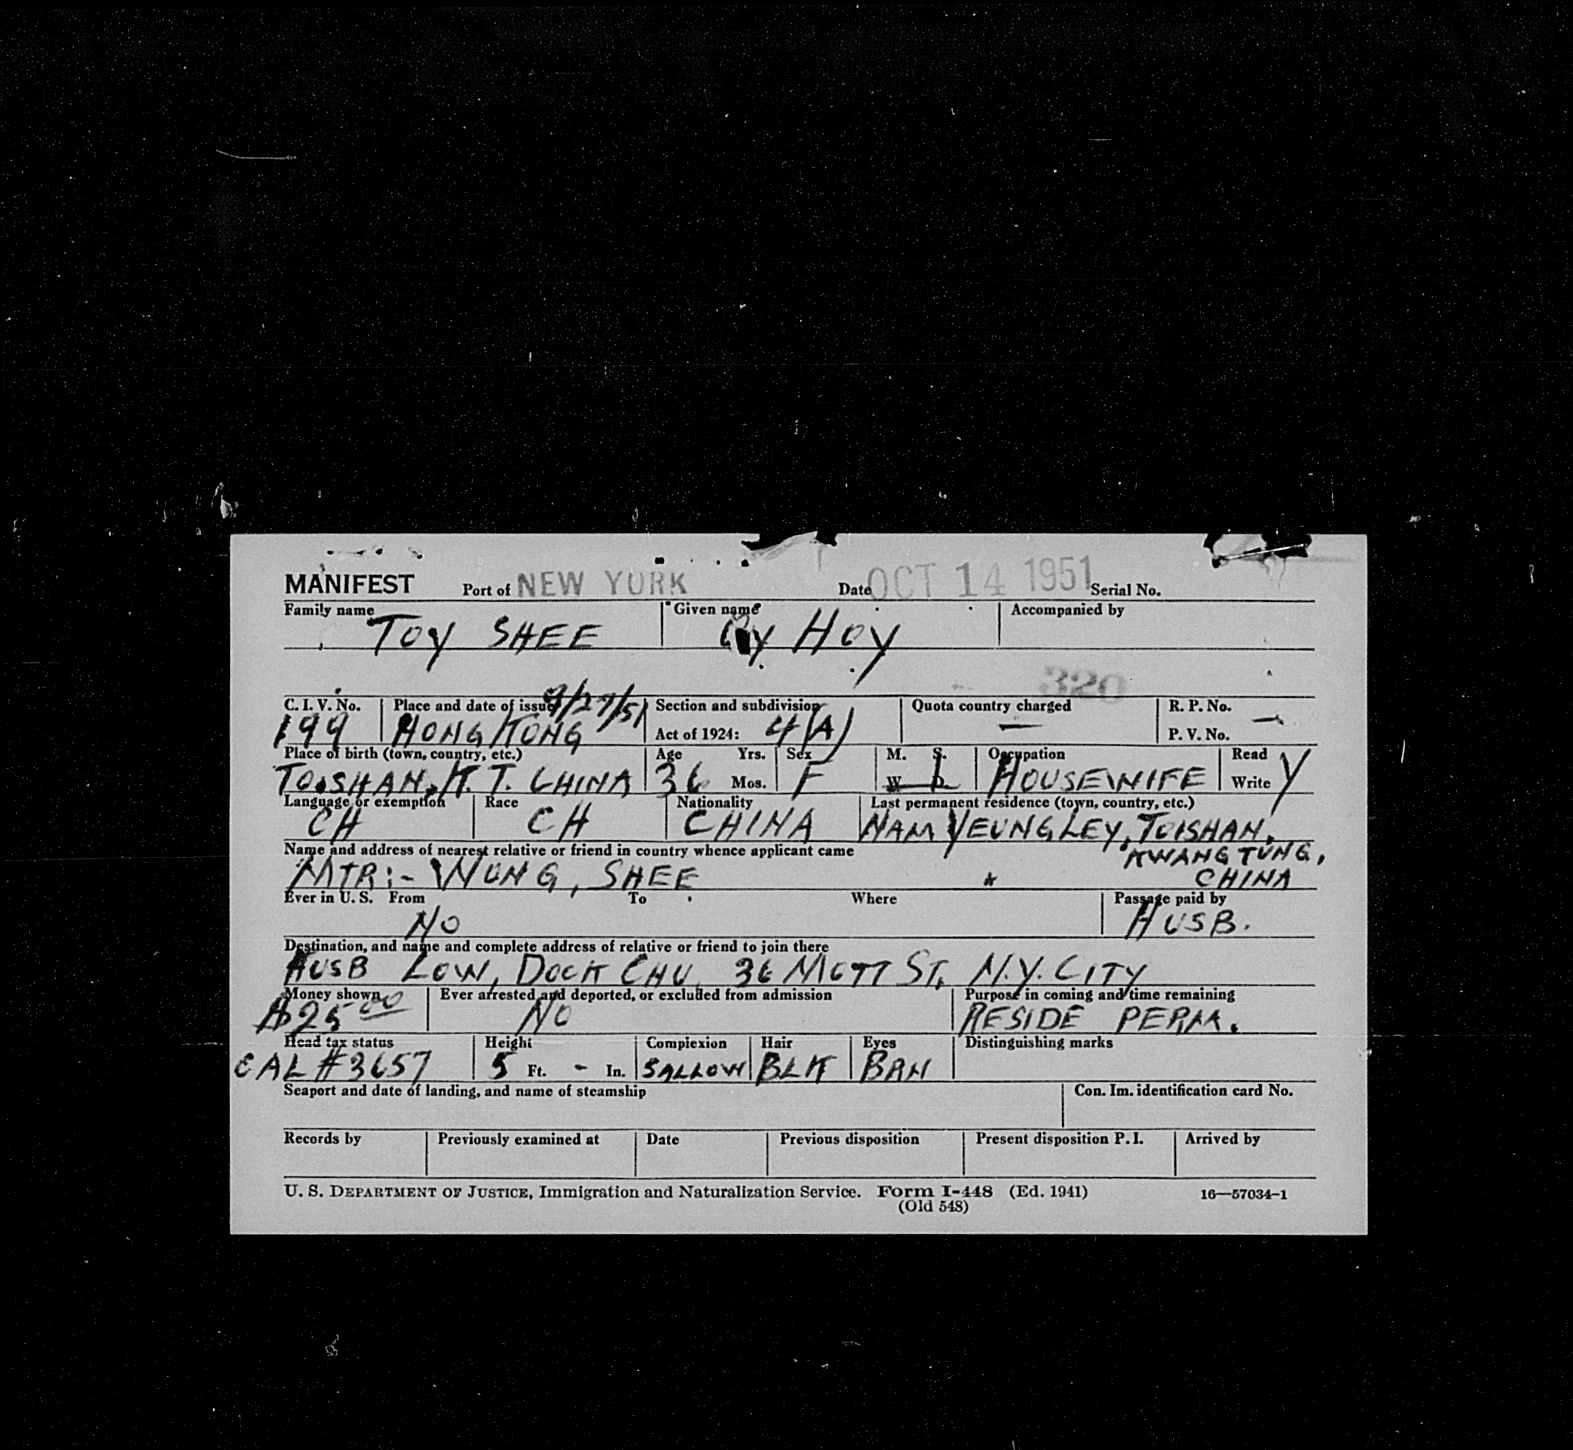 MANIFEST Port of NEW YORK Date OCT 14 1951 Serial No.
Family name Given name Accompanied by
TOY SHEE HOY
320
C. I. V. No. Place and date of issue 9/27/51 Section and subdivision Quota country charged R. P. No.
199 HONG KONG Act of 1924: 4(A) — P. V. No. —
Place of birth (town, country, etc.) Age Yrs. Sex M. S. Occupation Read
TOISHAN, K. T. CHINA 36 Mos. F W D. HOUSEWIFE Write Y
Language or exemption Race Nationality Last permanent residence (town, country, etc.)
CH CH CHINA NAM YEUNG LEY, TOISHAN,
Name and address of nearest relative or friend in country whence applicant came KWANGTUNG,
MTR:- WONG, SHEE CHINA
Ever in U. S. From To Where Passage paid by
NO HUSB.
Destination, and name and complete address of relative or friend to join there
HUSB LOW, DOCK CHU, 36 MOTT ST, N.Y. CITY
Money shown Ever arrested and deported, or excluded from admission Purpose in coming and time remaining
$25.00 NO RESIDE PERM.
Head tax status Height Complexion Hair Eyes Distinguishing marks
CAL #3657 5 Ft. - In. SALLOW BLK BRN
Seaport and date of landing, and name of steamship Con. Im. identification card No.
Records by Previously examined at Date Previous disposition Present disposition P. I. Arrived by
U. S. DEPARTMENT OF JUSTICE, Immigration and Naturalization Service. Form I-448 (Ed. 1941) 16—57034-1
(Old 548)